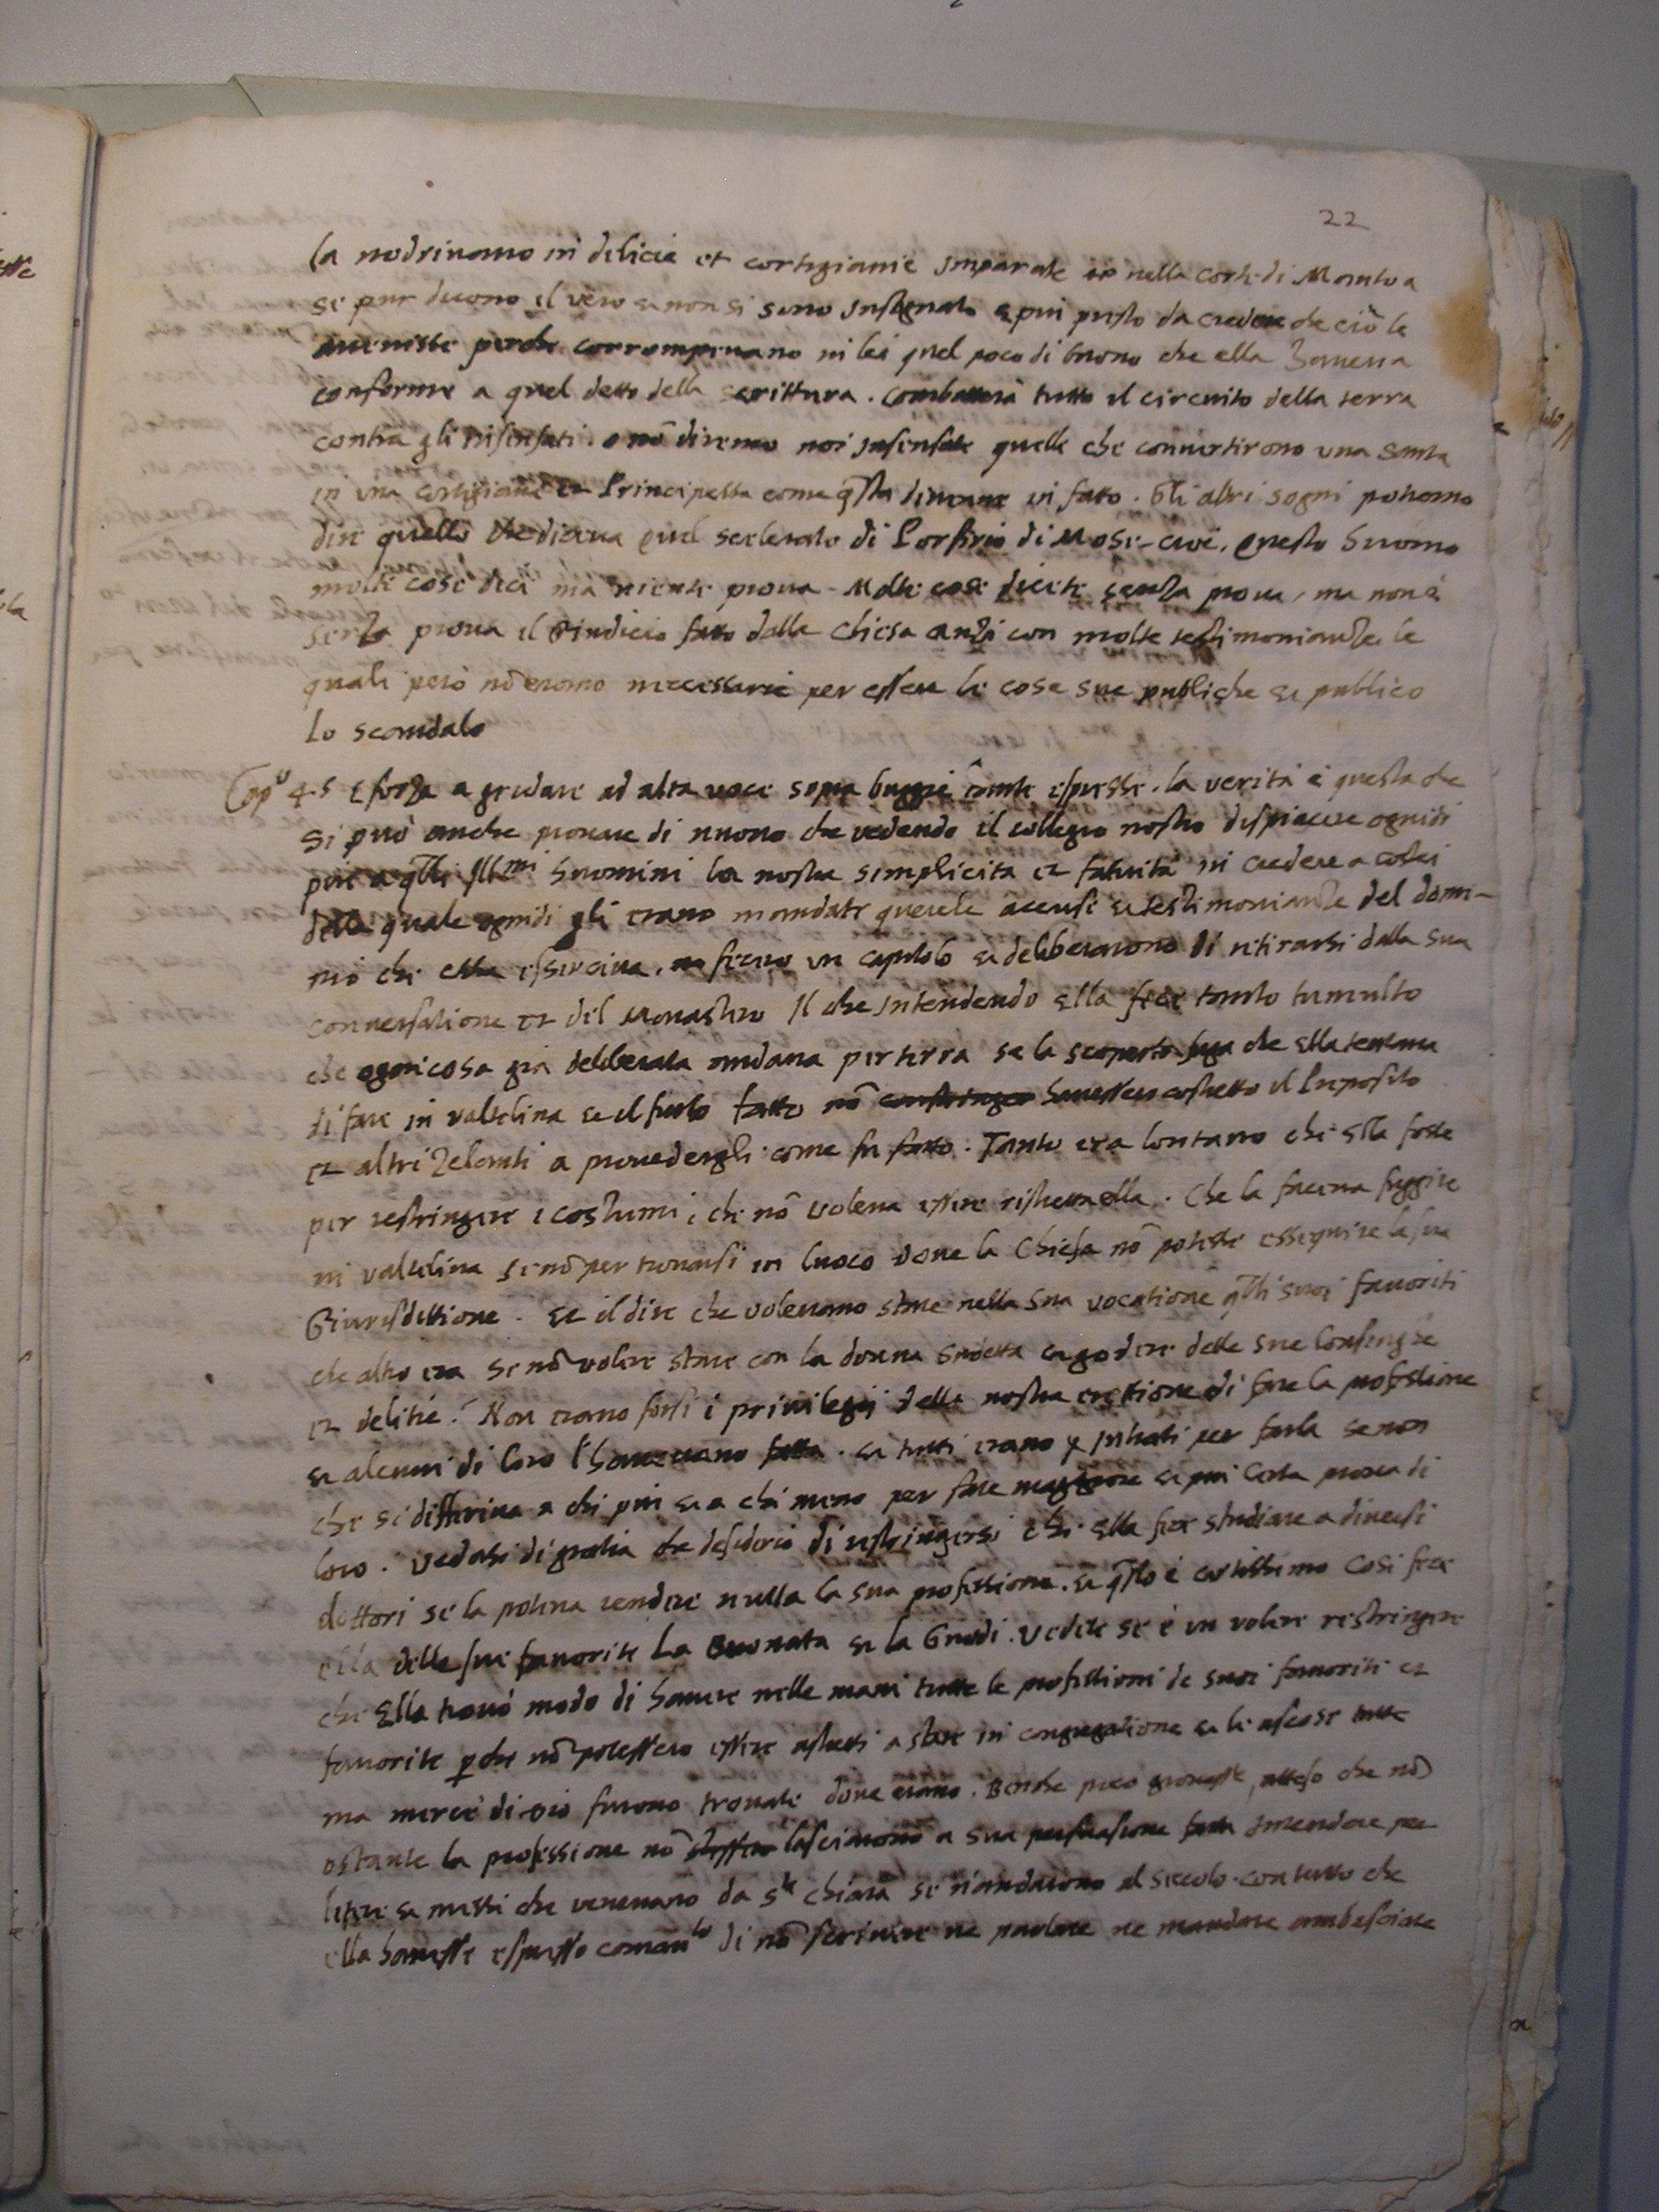 22
la nodrivano in delicie et cortigianie imparate nella corte di Mantoa
se pur dicono il vero se non si sono insegnato e piu presto da credere che ciò le
avenisse perche corrompevano in lei quel poco di buono che ella haveva
conforme a quel detto della scrittura. combatterà tutto il circuito della terra
contra gli insensati. o nõ diremo noi insensate quelle che convertirono una santa
in una cortigiana et Principessa come q̃sta divenne in fatto. Gli altri sogni potiamo
dire quello che diceva quel scelerato di Porfirio di Mose cioè, questo huomo
molte cose dice ma niente prova. Molte cose dicete senza prova, ma non è
senza prova il Giudicio fatto dalla chiesa anzi con molte testimonianze le
quali però nõ erano necessarie per essere le cose sue publiche et publico
lo scandalo
Capº 45 E forza a gridare ad alta voce sopra buggie tante espresse. la verità è questa che
si può anche provare di nuovo che vedendo il collegio nostro dispiacere ognidi
piu a q̃lli Illmi huomini la nostra simplicita et fatuità in credere a costei
della quale ognidi gli erano mandate querele accuse et testimonianze del domi-
nio che essa essercitava, fecero un capitolo et deliberarono di ritirarsi dalla sua
conversatione et del Monastero Il che intendendo ella fece tanto tumulto
che ogni cosa già deliberata andava per terra se la scoperta fuga che ella tentava
di fare in valtelina et il furto fatto nõ constringer havessero costretto il Preposito
et altri zelanti a provedergli come fu fatto. Tanto era lontano che ella fosse
per restringere i costumi, che nõ voleva essere ristretta ella. Che la faceva fuggire
in valtelina se nõ per trovarsi in luoco dove la Chiesa nõ potesse essequire la sua
Giurisdittione. et il dire che volevano stare nella sua vocatione q̃lli suoi favoriti
che altro era se nõ volere stare con la donna sudetta et godere delle sue lusinghe
et delitie? Non erano forsi i privilegij della nostra erettione di fare la professione
et alcuni di loro l'havevano fatta. et tutti erano per farla se non
che si differiva a chi piu et a chi meno per fare maggiore et piu certa prova di
loro. vedasi di gratia che desiderio di restringersi che ella fece studiare a diversi
dottori se la poteva rendere nulla la sua professione. et q̃sto è certissimo cosi fece
ella delle sue favorite la Buonata et la Gnodi. vedete se è un volere restringere
che ella trovò modo di havere nelle mani tutte le professioni de suoi favoriti et
favorite perche nõ potessero essere astretti a stare in congregatione et le ascose tutte
ma mercè di Dio furono trovate dove erano. Benche poco giovasse, atteso che nõ
ostante la professione nõ lasciarono a sua persuasione intendere per
letere et messi che venevano da sta chiara se riandarono al seccolo. con tutto che
ella havesse espresso comãnto di nõ scrivere ne parlare ne mandare ambasciate